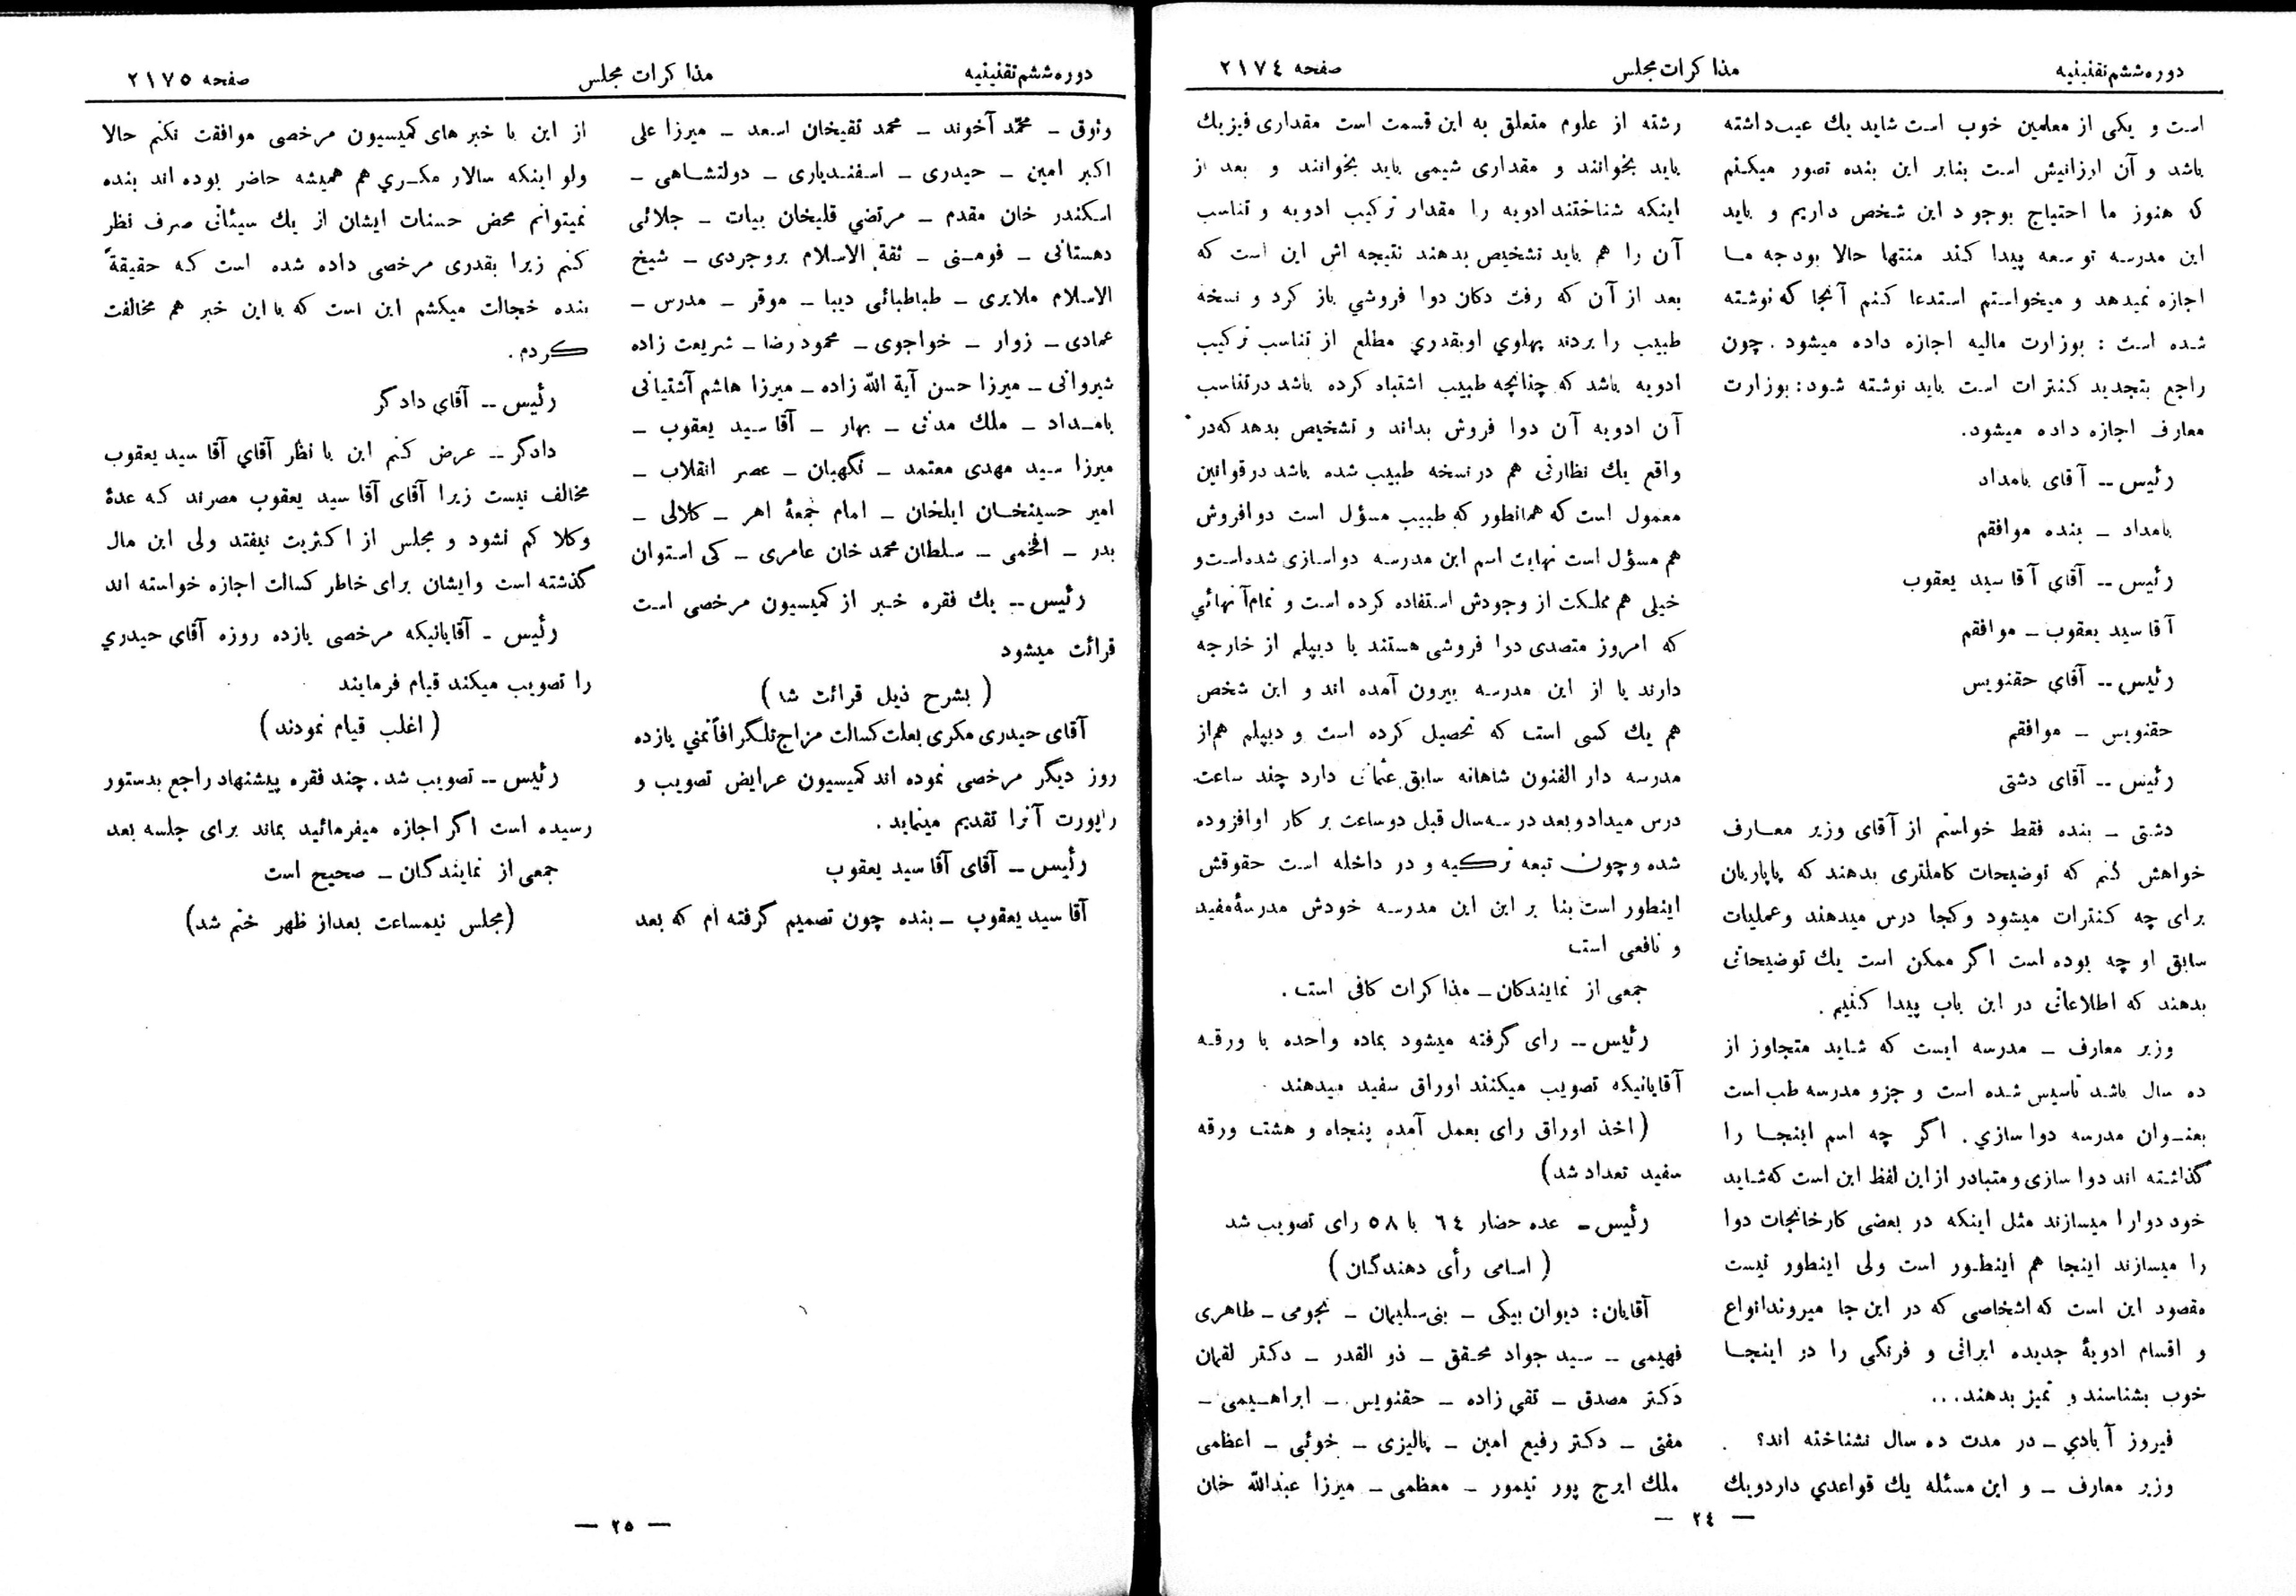 دوره ششم تقنینیه
مذاکرات مجلس
صفحه ۲۱۷٤
است و یکی از معلمین خوب است شاید یك عیب داشته
باشد و آن ارزانیش است بنابر این بنده تصور میکنم
که هنوز ما احتیاج بوجود این شخص داریم و باید
این مدرسه توسعه پیدا کند منتها حالا بودجه ما
اجازه نمیدهد و میخواستم استدعا کنم آنجا که نوشته
شده است : بوزارت مالیه اجازه داده میشود . چون
راجع بتجدید کنترات است باید نوشته شود: بوزارت
معارف اجازه داده میشود.
رئیس -- آقای بامداد
بامداد - بنده موافقم
رئیس -- آقای آقا سید یعقوب
آقا سید یعقوب - موافقم
رئیس -- آقای حقنویس
حقنویس - موافقم
رئیس -- آقای دشتی
دشتی - بنده فقط خواستم از آقای وزیر معارف
خواهش کنم که توضیحات کاملتری بدهند که پاپاریان
برای چه کنترات میشود و کجا درس میدهند و عملیات
سابق او چه بوده است اگر ممکن است یك توضیحاتی
بدهند که اطلاعاتی در این باب پیدا کنیم .
وزیر معارف - مدرسه ایست که شاید متجاوز از
ده سال باشد تاسیس شده است و جزو مدرسه طب است
بعنوان مدرسه دوا سازي . اگر چه اسم اینجا را
گذاشته اند دوا سازی و متبادر از این لفظ این است که شاید
خود دوارا میسازند مثل اینکه در بعضی کارخانجات دوا
را میسازند اینجا هم اینطور است ولی اینطور نیست
مقصود این است که اشخاصی که در این جا میروند انواع
و اقسام ادویهٔ جدیده ایرانی و فرنگی را در اینجا
خوب بشناسند و تمیز بدهند...
فیروز آبادي - در مدت ده سال نشناخته اند؟
وزیر معارف - و این مسئله یك قواعدي دارد و یك
رشته از علوم متعلق به این قسمت است مقداری فیزیك
باید بخوانند و مقداری شیمی باید بخوانند و بعد از
اینکه شناختند ادویه را مقدار ترکیب ادویه و تناسب
آن را هم باید تشخیص بدهند نتیجه اش این است که
بعد از آن که رفت دکان دوا فروشي باز کرد و نسخه
طبیب را بردند پهلوي او بقدري مطلع از تناسب ترکیب
ادویه باشد که چنانچه طبیب اشتباه کرده باشد در تناسب
آن ادویه آن دوا فروش بداند و تشخیص بدهد که در
واقع یك نظارتی هم در نسخه طبیب شده باشد در قوانین
معمول است که همانطور که طبیب مسؤل است دوافروش
هم مسؤل است نهایت اسم این مدرسه دواسازی شده است و
خیلی هم مملکت از وجودش استفاده کرده است و تمام آنهائي
که امروز متصدی دوا فروشی هستند یا دیپلم از خارجه
دارند یا از این مدرسه بیرون آمده اند و این شخص
هم یك کسی است که تحصیل کرده است و دیپلم هم از
مدرسه دار الفنون شاهانه سابق عثمانی دارد چند ساعت
درس میداد و بعد در سه سال قبل دو ساعت بر کار او افزوده
شده و چون تبعه ترکیه و در داخله است حقوقش
اینطور است بنا بر این این مدرسه خودش مدرسهٔ مفید
و نافعی است
جمعی از نمایندکان - مذاکرات کافی است .
رئیس -- رای گرفته میشود بماده واحده با ورقه
آقایانیکه تصویب میکنند اوراق سفید میدهند
(اخذ اوراق رای بعمل آمده پنجاه و هشت ورقه
سفید تعداد شد)
رئیس - عده حضار ٦٤ با ٥٨ رای تصویب شد
( اسامی رأی دهندگان )
آقایان: دیوان بیکی - بنی سلیمان - نجومی - طاهری
فهیمی -- سید جواد محقق - ذو القدر - دکتر لقمان
دکتر مصدق - تقی زاده - حقنویس - ابراهیمی -
مفتی - دکتر رفیع امین - پالیزی - خوئی - اعظمی
ملك ایرج پور تیمور - معظمی - میرزا عبدالله خان
— ۲٤ —
دوره ششم تقنینیه
مذاکرات مجلس
صفحه ۲۱۷٥
وثوق - محمد آخوند - محمد تقیخان اسعد - میرزا علی
اکبر امین - حیدری - اسفندیاری - دولتشاهی -
اسکندر خان مقدم - مرتضي قلیخان بیات - جلائی
دهستانی - فومنی - ثقة الاسلام بروجردی - شیخ
الاسلام ملایری - طباطبائی دیبا - موقر - مدرس -
عمادی - زوار - خواجوی - محمود رضا - شریعت زاده
شیروانی - میرزا حسن آیة الله زاده - میرزا هاشم آشتیانی
بامداد - ملك مدنی - بهار - آقا سید یعقوب -
میرزا سید مهدی معتمد - نگهبان - عصر انقلاب -
امیر حسینخان ایلخان - امام جمعهٔ اهر - کلالی -
بدر - افخمی - سلطان محمد خان عامری - کی استوان
رئیس -- یك فقره خبر از کمیسیون مرخصی است
قرائت میشود
( بشرح ذیل قرائت شد )
آقای حیدری مکری بعلت کسالت مزاج تلگرافاً تمني یازده
روز دیگر مرخصی نموده اند کمیسیون عرایض تصویب و
راپورت آنرا تقدیم مینماید .
رئیس -- آقای آقا سید یعقوب
آقا سید یعقوب - بنده چون تصمیم گرفته ام که بعد
از این با خبر های کمیسیون مرخصی موافقت نکنم حالا
ولو اینکه سالار مکري هم همیشه حاضر بوده اند بنده
نمیتوانم محض حسنات ایشان از یك سیئاتی صرف نظر
کنم زیرا بقدری مرخصی داده شده است که حقیقةً
بنده خجالت میکشم این است که با این خبر هم مخالفت
کردم .
رئیس -- آقای دادگر
دادگر -- عرض کنم این با نظر آقاي آقا سید یعقوب
مخالف نیست زیرا آقای آقا سید یعقوب مصرند که عدهٔ
وکلا کم نشود و مجلس از اکثریت نیفتد ولی این مال
گذشته است و ایشان برای خاطر کسالت اجازه خواسته اند
رئیس - آقایانیکه مرخصی یازده روزه آقای حیدري
را تصویب میکند قیام فرمایند
( اغلب قیام نمودند )
رئیس -- تصویب شد . چند فقره پیشنهاد راجع بدستور
رسیده است اگر اجازه میفرمائید بماند برای جلسه بعد
جمعی از نمایندکان - صحیح است
(مجلس نیمساعت بعداز ظهر ختم شد)
— ۲٥ —